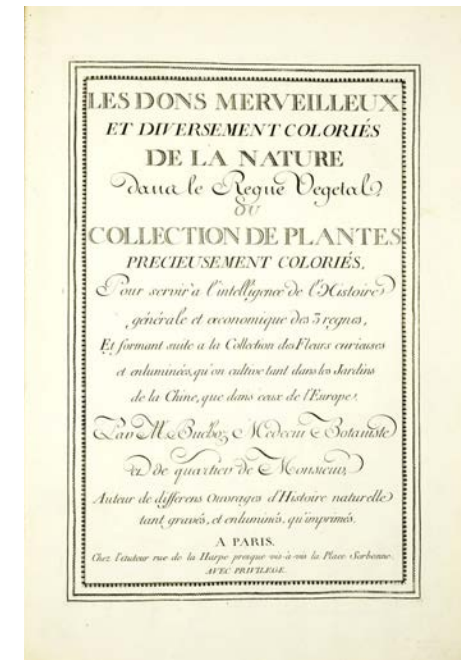 LES DONS MERVEILLEUX
ET DIVERSEMENT COLORIÉS
DE LA NATURE
dans le Regne Vegetal,
OU
COLLECTION DE PLANTES
PRECIEUSEMENT COLORIÉS,
Pour servir à l'intelligence de l'Histoire
générale et œconomique des 3 regnes,
Et formant suite a la Collection des Fleurs curieuses
et enluminées, qu'on cultive tant dans les Jardins
de la Chine, que dans ceux de l'Europe,
Par M. Buchoz, Medecin Botaniste
et de quartier de Monsieur,
Auteur de differens Ouvrages d'Histoire naturelle
tant gravés, et enluminés, qu'imprimés.
A PARIS.
Chez l'Auteur rue de la Harpe presque vis-à-vis la Place Sorbonne.
AVEC PRIVILEGE.